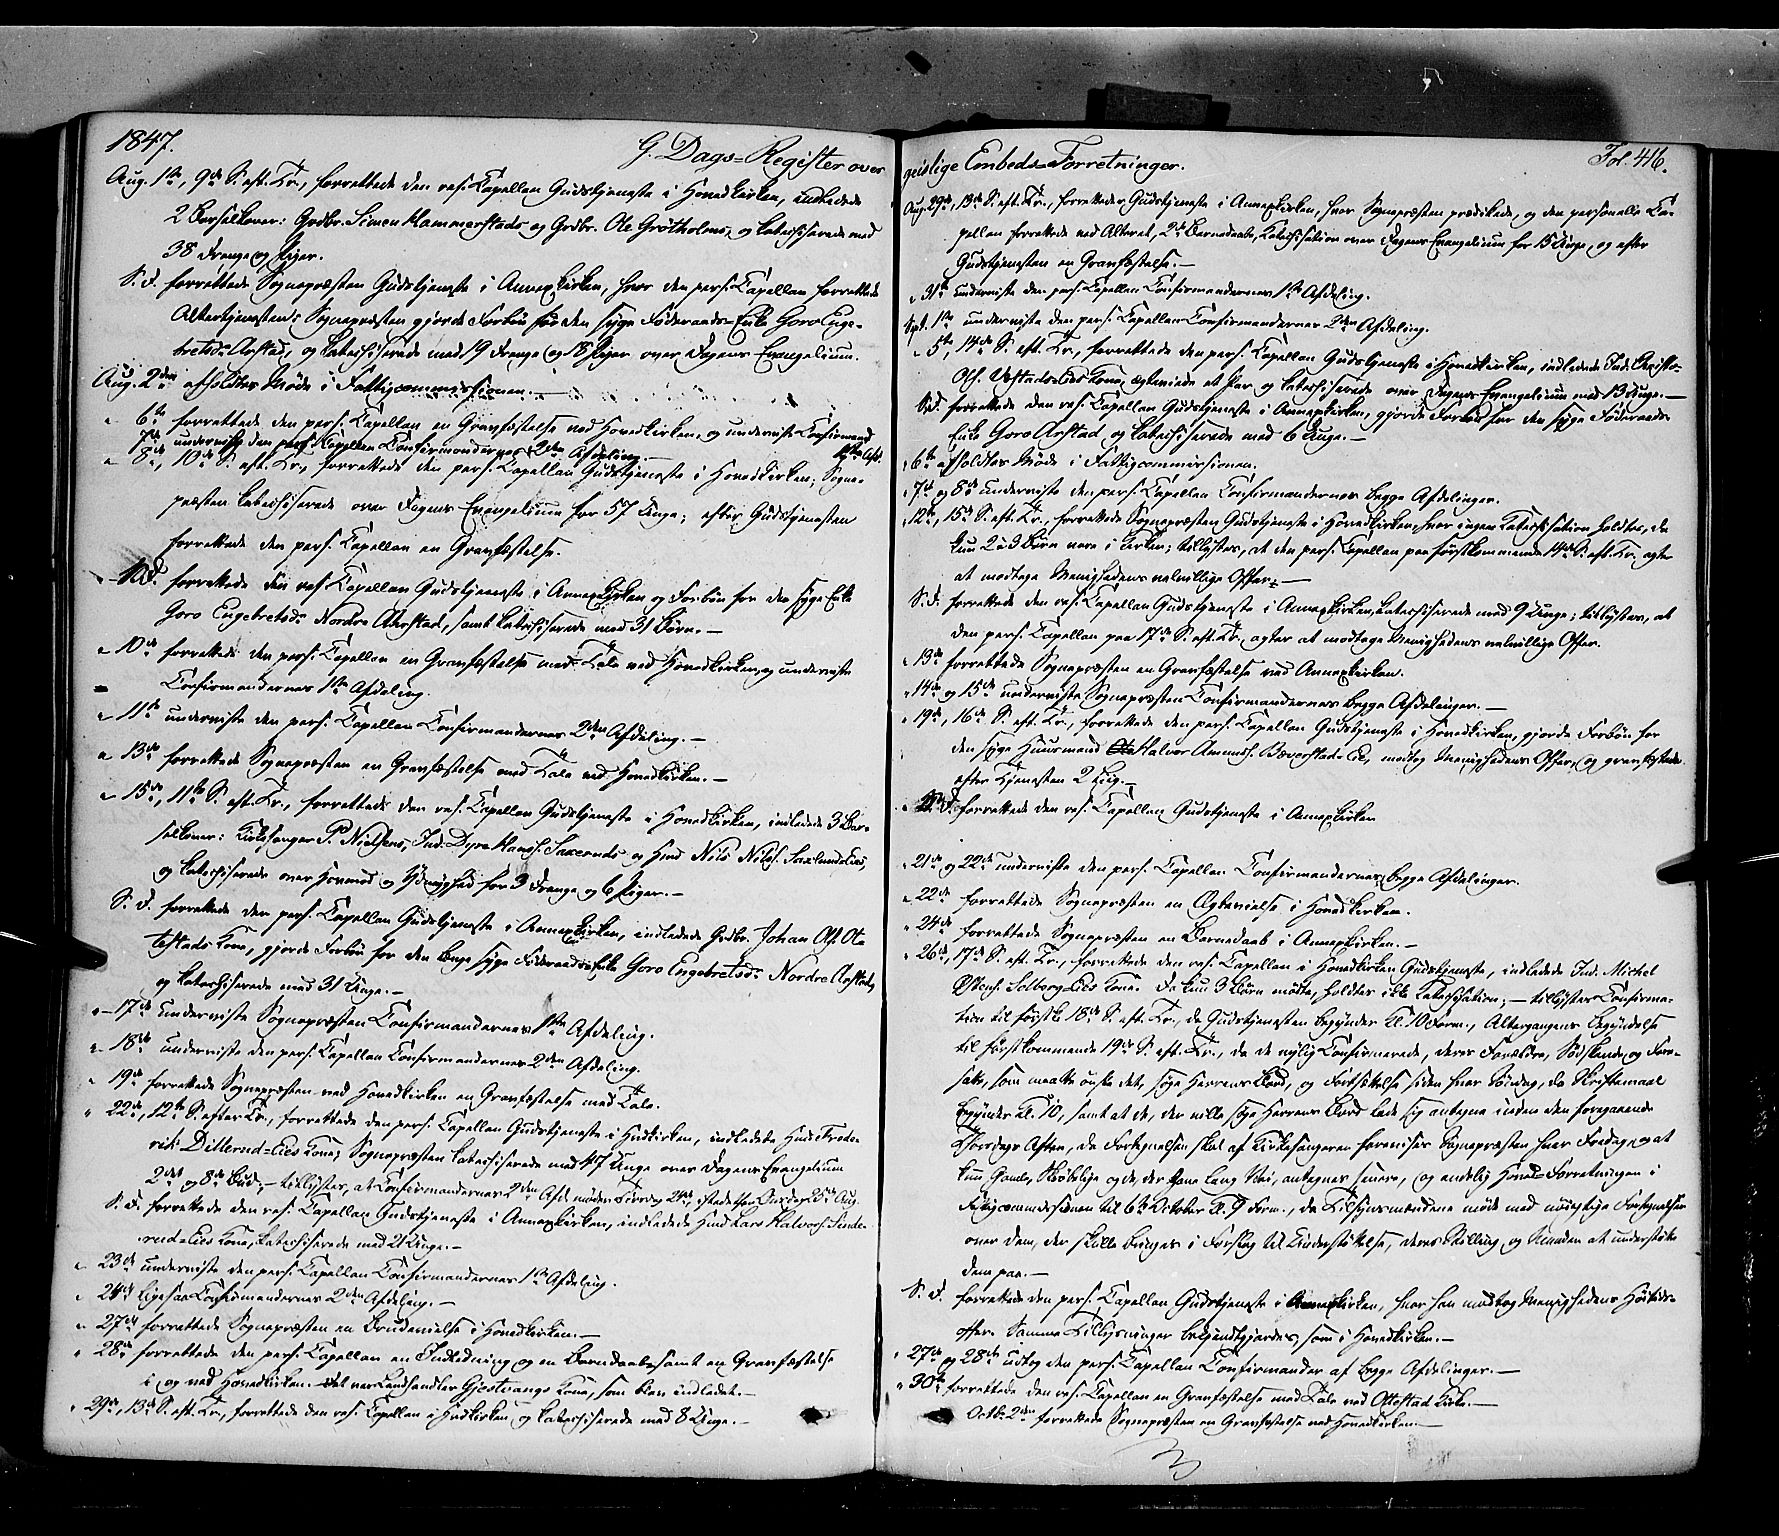 1847.
G. Dags=Register over
Aug. 1ste, 9de S. eft. Tr., forrettede den res. Capellan Gudstjeneste i Hovedkirken, indledede
2 Barselkoner: Grdbr. Simen Hammerstads og Grdbr. Ole Grötholms, og katechiserede med
38 Drenge og Piger.
S. D. forrettede Sognepræsten Gudstjeneste i Annexkirken, hvor den pers. Capellan forrettede
Altertjenesten; Sognepræsten gjorde Forbön for den syge Föderaads-Enke Goro Enge-
bretsd. Aastad, og katechiserede med 19 Drenge og 18 Piger over Dagens Evangelium.
Aug. 2den afholdtes Möde i Fattigcommissionen.
" 6te forrettede den pers. Capellan en Gravfæstelse ved Hovedkirken, og underviste Confirmand
1ste Afd.
7de underviste den pers. Capellan Confirmandernes 2den Afdeling.
" 8de, 10de S. eft. Tr., forrettede den pers. Capellan Gudstjeneste i Hovedkirken; Sogne-
præsten katechiserede over Dagens Evangelium for 57 Unge; efter Gudstjenesten
forrettede den pers. Capellan en Gravfæstelse.
S. D. forrettede den res. Capellan Gudstjeneste i Annexkirken og Forbön for den syge Enke
Goro Engebretsd. Nordre Aarstad, samt katechiserede med 31 Börn.
" 10de forrettede den pers. Capellan en Gravfæstelse med Tale ved Hovedkirken, og underviste
Confirmandernes 1ste Afdeling.
" 11te underviste den pers. Capellan Confirmandernes 2den Afdeling.
" 13de forrettede Sognepræsten en Gravfæstelse med Tale ved Hovedkirken.
" 15de, 11te S. eft. Tr., forrettede den res. Capellan Gudstjeneste i Hovedkirken, indledede 3 Bar-
selkoner: Kirkesanger P. Nielsens, Ind. Dyre Hans. Saxeruds og Hmd Nils Nils. Saxlundeies,
og katechiserede over Hovmod og Ydmyghed for 3 Drenge og 6 Piger.
S. D. forrettede den pers. Capellan Gudstjeneste i Annexkirken, indledede Grdbr. Johan Ols. Ote
testads Kone, gjorde Forbön for den længe syge Föderaads Enke Goro Engebretsd. Nordre Aastad,
og katechiserede med 31 Unge.
" 17de underviste Sognepræsten Confirmandernes 1ste Afdeling.
" 18de underviste den pers. Capellan Confirmandernes 2den Afdeling.
" 19de forrettede Sognepræsten ved Hovedkirken en Gravfæstelse med Tale.
" 22de, 12te S. efter Tr., forrettede den pers. Capellan Gudstjeneste i Hvdkirken, indledede Hmd Frede-
rik Dillerud-Eies Kone; Sognepræsten katechiserede med 47 Unge over Dagens Evangelium
2det og 8de Bud; tillystes, at Confirmandernes 2den Afd. möder Tirsdag 24de, istedetfor Onsdag 25de Aug.
S. D. forrettede den res. Capellan Gudstjeneste i Annexkirken, indledede Hmd Lars Halvors. Sinde-
rud-Eies Kone, katechiserede med 21 Unge.
" 23de underviste den pers. Capellan Confirmandernes 1ste Afdeling.
" 24de ligesaa Confirmandernes 2den Afdeling.
" 27de forrettede Sognepræsten en Brudevielse i Hovedkirken.
" 28de forrettede den pers. Capellan en Indledning og en Barnedaab samt en Gravfæstelse
i og ved Hovedkirken. Det var Landhandler Gjestvangs Kone, som blev indledet.
" 29de, 13de S. eft. Tr., forrettede den res. Capellan i Hvdkirken og katechiserede med 8 Unge.
geistlige Embeds=Forretninger.
Fol. 416.
Aug. 29de, 13de S. eft. Tr., forrettedes Gudstjeneste i Annexkirken, hvor Sognepræsten prædikede, og den personelle Ca-
pellan forrettede ved Alteret, 2de Barnedaabe, Katechisation over Dagens Evangelium for 15 Unge, og efter
Gudstjenesten en Gravfæstelse.
" 31te underviste den pers. Capellan Confirmandernes 1ste Afdeling.
Spt. 1ste underviste den pers. Capellan Confirmandernes 2den Afdeling.
" 5te, 14de S. eft. Tr., forrettede den pers. Capellan Gudstjeneste i Hovedkirken, indledede Ind. Christo.
Ols. Vestads-Eies Kone, ægteviede et Par og katechiserede over Dagens Evangelium med 13 Unge.
S. D. forrettede den res. Capellan Gudstjeneste i Annexkirken, gjorde Forbön for den syge Föderaads-
Enke Goro Aastad og katechiserede med 6 Unge.
" 6te afholdtes Möde i Fattigcommissionen.
" 7de og 8de underviste den pers. Capellan Confirmandernes begge Afdelinger.
" 12te, 15de S. eft. Tr., forrettede Sognepræsten Gudstjeneste i Hovedkirken, hvor ingen Katechisation holdtes, da
kun 2 à 3 Börn vare i Kirken; tillystes, at den pers. Capellan paa förstkommende 14de S. eft. Tr. agter
at modtage Menighedens velvillige Offer.
S. D. forrettede den res. Capellan Gudstjeneste i Annexkirken, katechiserede med 9 Unge; tillystes, at
den pers. Capellan paa 17de S. eft. Tr. agter at modtage Menighedens velvillige Offer.
" 13de forrettede Sognepræsten en Gravfæstelse ved Annexkirken.
" 14de og 15de underviste Sognepræsten Confirmandernes begge Afdelinger.
" 19de, 16de S. eft. Tr., forrettede den pers. Capellan Gudstjeneste i Hovedkirken, gjorde Forbön for
den syge Huusmand Halvor Amunds. Bæverstad-Eie, modtog Menighedens Offer, og gravfæstede
efter Tjenesten 2 Liig.
S. D. forrettede den res. Capellan Gudstjeneste i Annexkirken
" 21de og 22de underviste den pers. Capellan Confirmandernes begge Afdelinger.
" 22de forrettede Sognepræsten en Ægtevielse i Hovedkirken.
" 24de forrettede Sognepræsten en Barnedaab i Annexkirken.
" 26de, 17de S. eft. Tr., forrettede den res. Capellan i Hovedkirken Gudstjeneste, indledede Ind. Michel
Östens. Solberg-Eies Kone. Da kun 3 Börn mödte, holdtes ikke Katechisation; tillystes Confirma-
tion til förstk. 18de S. eft. Tr., da Gudstjenesten begynder Kl. 10 Form., Altergangens Begyndelse
til förstkommende 19de S. eft. Tr., da de nylig Confirmerede, deres Forældre, Södskende og Fore-
satte, som maatte önske det, söge Herrens Bord, og Fortsættelse siden hver Söndag, da Skriftemaal
begynder Kl. 10, samt at de, der ville söge Herrens Bord lade sig antegne inden den foregaaende
Thorsdags Aften, da Fortegnelsen skal af Kirkesangeren foreviises Sognepræsten hver Fredag, og at
kun Gamle, Skröbelige og de, der have lang Vei, antegnes senere, (og endelig Forretningen i
Fattigcommissionen til 6te October Kl. 9 Form., da Tilsynsmændene möde med nöiagtige Fortegnelser
over dem, der skulle bringes i Forslag til Understöttelse, deres Stilling, og Maaden at understötte
dem paa.
S. D. forrettede den pers. Capellan Gudstjeneste i Annexkirken, hvor han modtog Menighedens Höitids-
Offer. Samme Tillysninger bekjendtgjordes, som i Hovedkirken.
" 27de og 28de udtog den pers. Capellan Confirmander af begge Afdelinger.
" 30te forrettede den res. Capellan en Gravfæstelse med Tale ved Ottestad Kirke.
Octb. 2den forrettede Sognepræsten en Gravfæstelse ved Hovedkirken.